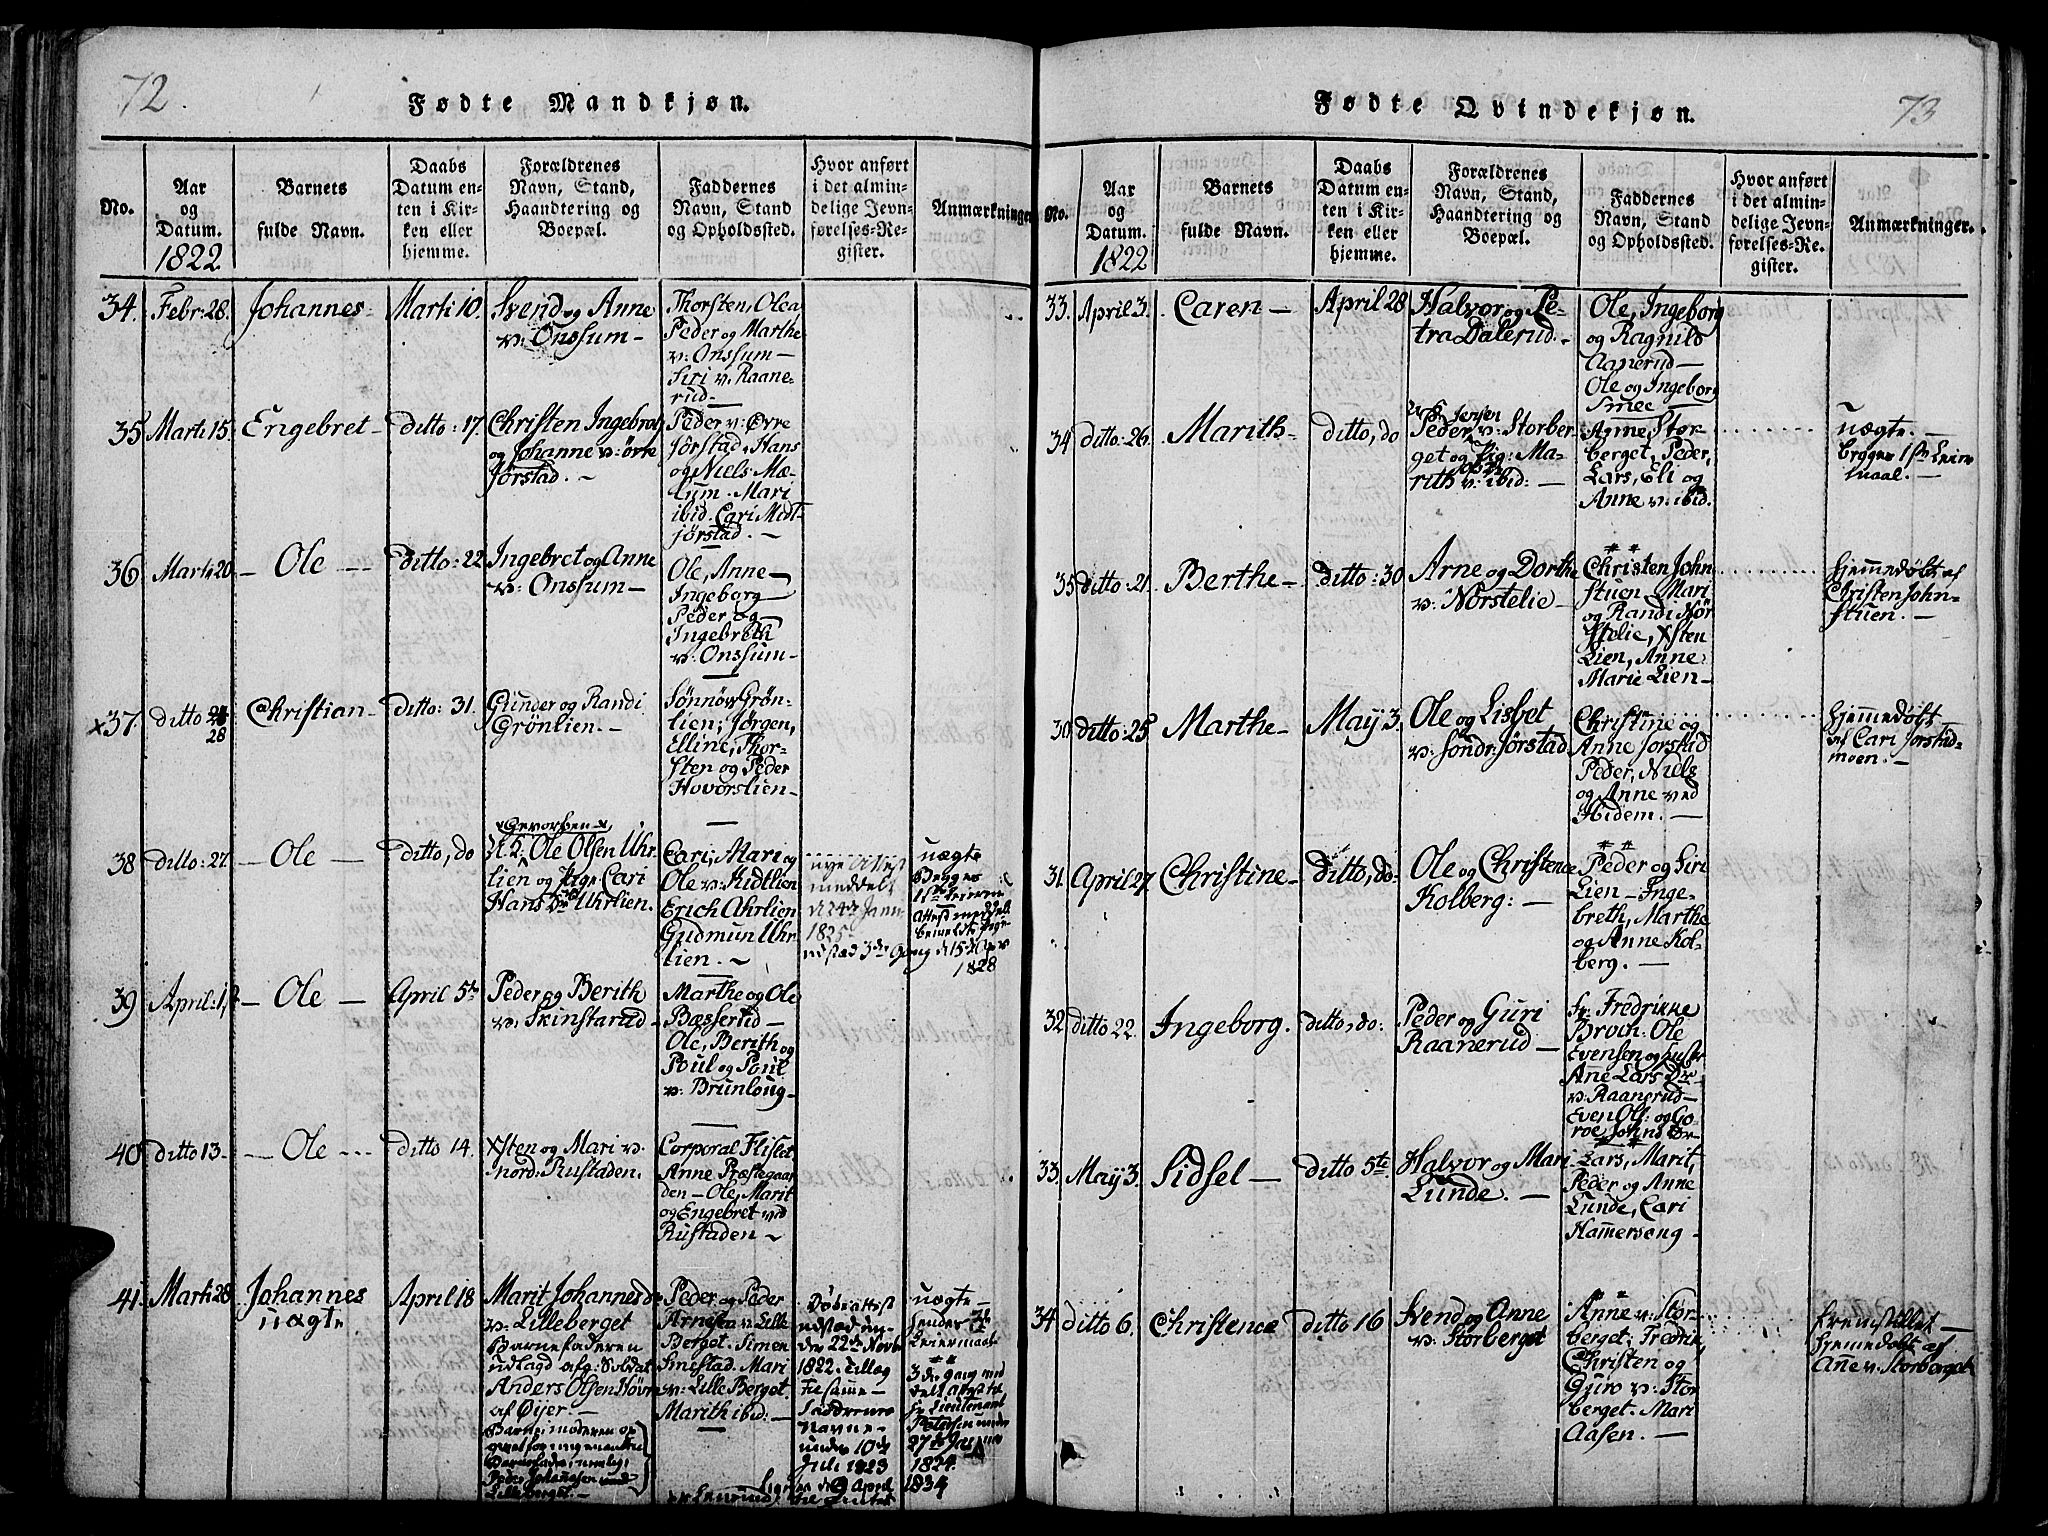 72.
Fødte Mandkjøn.
No.
Aar
og
Datum.
1822
Barnets
fulde Navn.
Daabs
Datum en-
ten i Kir-
ken eller
hjemme.
Forældrenes
Navn, Stand,
Haandtering og
Boepæl.
Faddernes
Navn, Stand
og Opholdsted.
Hvor anført
i det almin-
delige Jevn-
førelses-Re-
gister.
Anmærkninger
34.
Febr: 28.
Johannes-
Marti 10.
Svend og Anne
v: Onssum-
Thorsten, Olea
Peder og Marthe
v: Onssum-
Siri v. Raane-
rud-
35
Marti 15.
Engebret-
Ditto: 17.
Christen Ingebret
og Johanne v: örre
Jörstad. -
Peder v: Øvre
Jörstad, Hans
og Niels Mæ-
lum. Mari
ibid. Cari Midt-
jörstad. -
36
Marti 20
- Ole -
Ditto: 22.
Ingebret og Anne
v: Onssum-
Ole, Anne-
Ingeborg-
Peder og-
Ingebreth
v: Onssum-
x37.
ditto
28
Christian-
Ditto: 31.
Gunder og Randi
Grönlien.-
Sönnöv Grön-
lien; Jörgen,
Elline, Thor-
sten og Peder
Hovorslien-
38
ditto: 27.
- Ole -
ditto, do
Ole Olsen Uhr-
lien og Pige Cari
Hans Dr Uhrlien.
Cari; Mari og
Ole v: Kidtlien
Erich Uhrlien
Gudmun Uhr-
lien. -
meddelt
1825
uægte
Begges
1828
39
April: 1,
- Ole -
April 5te
Peder og Berith
v: Skinstarud-
Marthe og Ole
Bæsserud-
Ole, Berith og
Poul og Poul
v: Brunloug-
40
ditto 13.
- Ole -
ditto 14.
Ysten og Mari v:
nord: Rustaden.
Corporal Flislet
Anne Præstegaar-
den-Ole, Marit
og Engebret ved
Rustaden -
41.
Marti 28
Johannes
uægte
April 18
Marit Johannesd.
v: Lilleberget
Barnefaderen
udlagd afg: Soldat
Anders Olsen Hövre
af Øijer-
Peder Johannsen
Lilleberget.-
Peder og Peder
v: Lille
Berget. Simen
Smestad. Mari
v: Lille Berget
Marith ibid:-
Döbeattest
udstæd un-
der 22de Novbr
1822.
Faddrenes
Navne-
under 10de
Juli 1823
uægte
hendes
Leiermaal
3de gang
Lieutenant
Petersen under
1824
1834
73
Fødte Qvindekjøn.
No.
Aar
og
Datum.
1822
Barnets
fulde Navn.
Daabs
Datum en-
ten i Kir-
ken eller
hjemme.
Forældrenes
Navn, Stand,
Haandtering og
Boepæl.
Faddernes
Navn, Stand
og Opholdsted.
Hvor anført
i det almin-
delige Jevn-
førelses-Re-
gister.
Anmærkninger.
33.
April 3.
Caren-
April 28
Halvor og Pe-
tra Dalerud.-
Ole, Ingeborg
og Ragnild
Aanerud-
Ole og Ingeborg
Smec
34
ditto: 26.
Marith-
Ditto, do
Jensen
Peder v: Storber-
get og Pig: Ma-
rith v: ibid:-
Anne, Stor-
berget, Peder,
Lars, Eli og
Anne v: ibid.
uægte.-
begges 1ste Leier-
maal.-
35
ditto: 21.
Berthe-
ditto: 30
Arne og Dorthe
v: Norstelie-
Christen John-
stuen, Mari
og Randi Nör
stelie, Ysten
Lien, Anne
Marie Lien-
hjemmedöbt af
Christen John-
stuen.-
30
ditto: 25
Marthe-
May 3.
Ole og Lisbet
v: Söndr: Jörstad
Christine og
Anne Jorstad
Peder, Niels
og Anne ved
Hidem.-
hjemmedöbt
af Cari Jorstad-
moen.-
31.
April 27.
Christine-
Ditto, do-
Ole og Christence
Kolberg:-
Peder og Siri
Lien-Inge-
breth, Marthe
og Anne Kol-
berg.-
32
ditto 22.
Ingeborg.
ditto, do:
Peder og Guri
Raanerud-
Fr: Fredrikke
Broch: Ole
Evensen og
Anne Lars Dr
v: Raanerud-
Even Ols: og Go-
roe Johns Dr
33.
May 3.
Sidsel-
ditto 5te
Halvor og Mari
Lunde.-
Lars, Marit,
Peder og Anne
Lunde, Cari
Hammerseng-
34
ditto 6.
Christence
ditto 16
Svend og Anne
v: Storberget
Anne v: Stor-
berget: Fredrik,
Christen og
Guro v: Stor-
berget. Mari
Aasen.-
fremstillet-
hjemmedöbt af
Ane v: Storberget